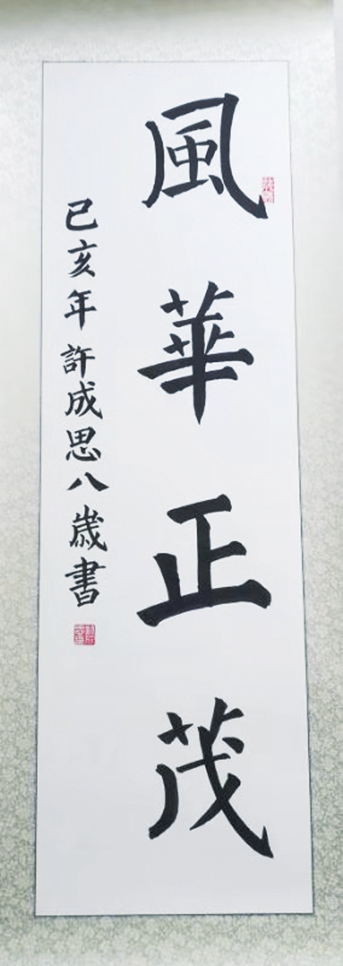 風華正茂
己亥年許成思八歲書